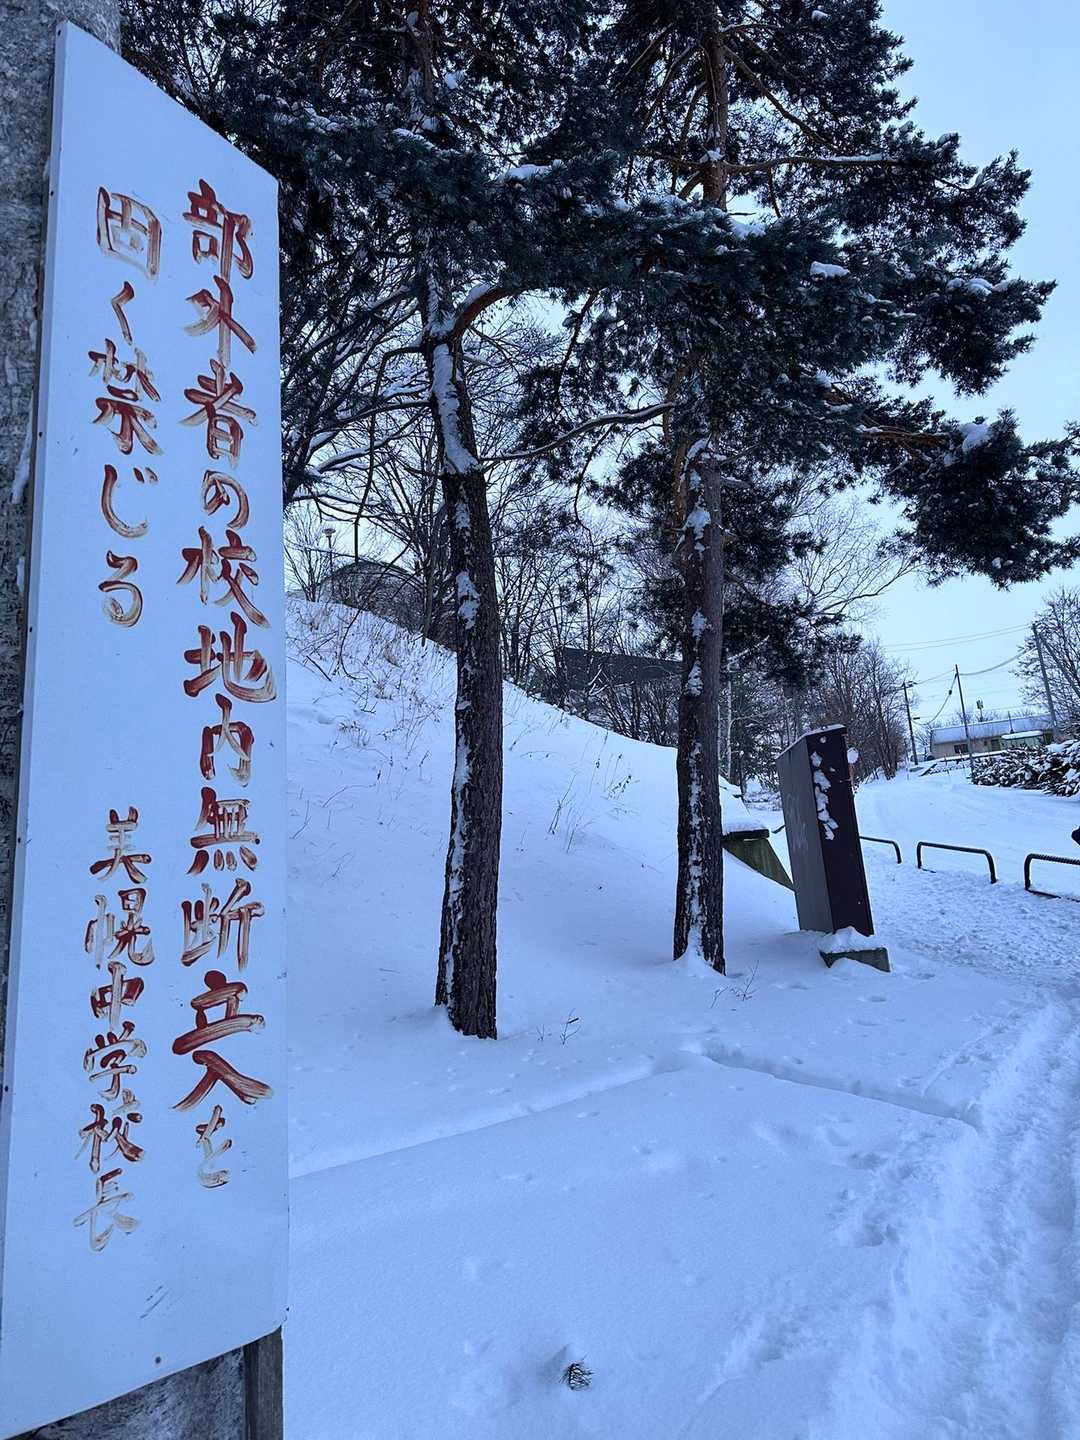 部外者の校地内無断立入を
固く禁じる
美幌中学校長